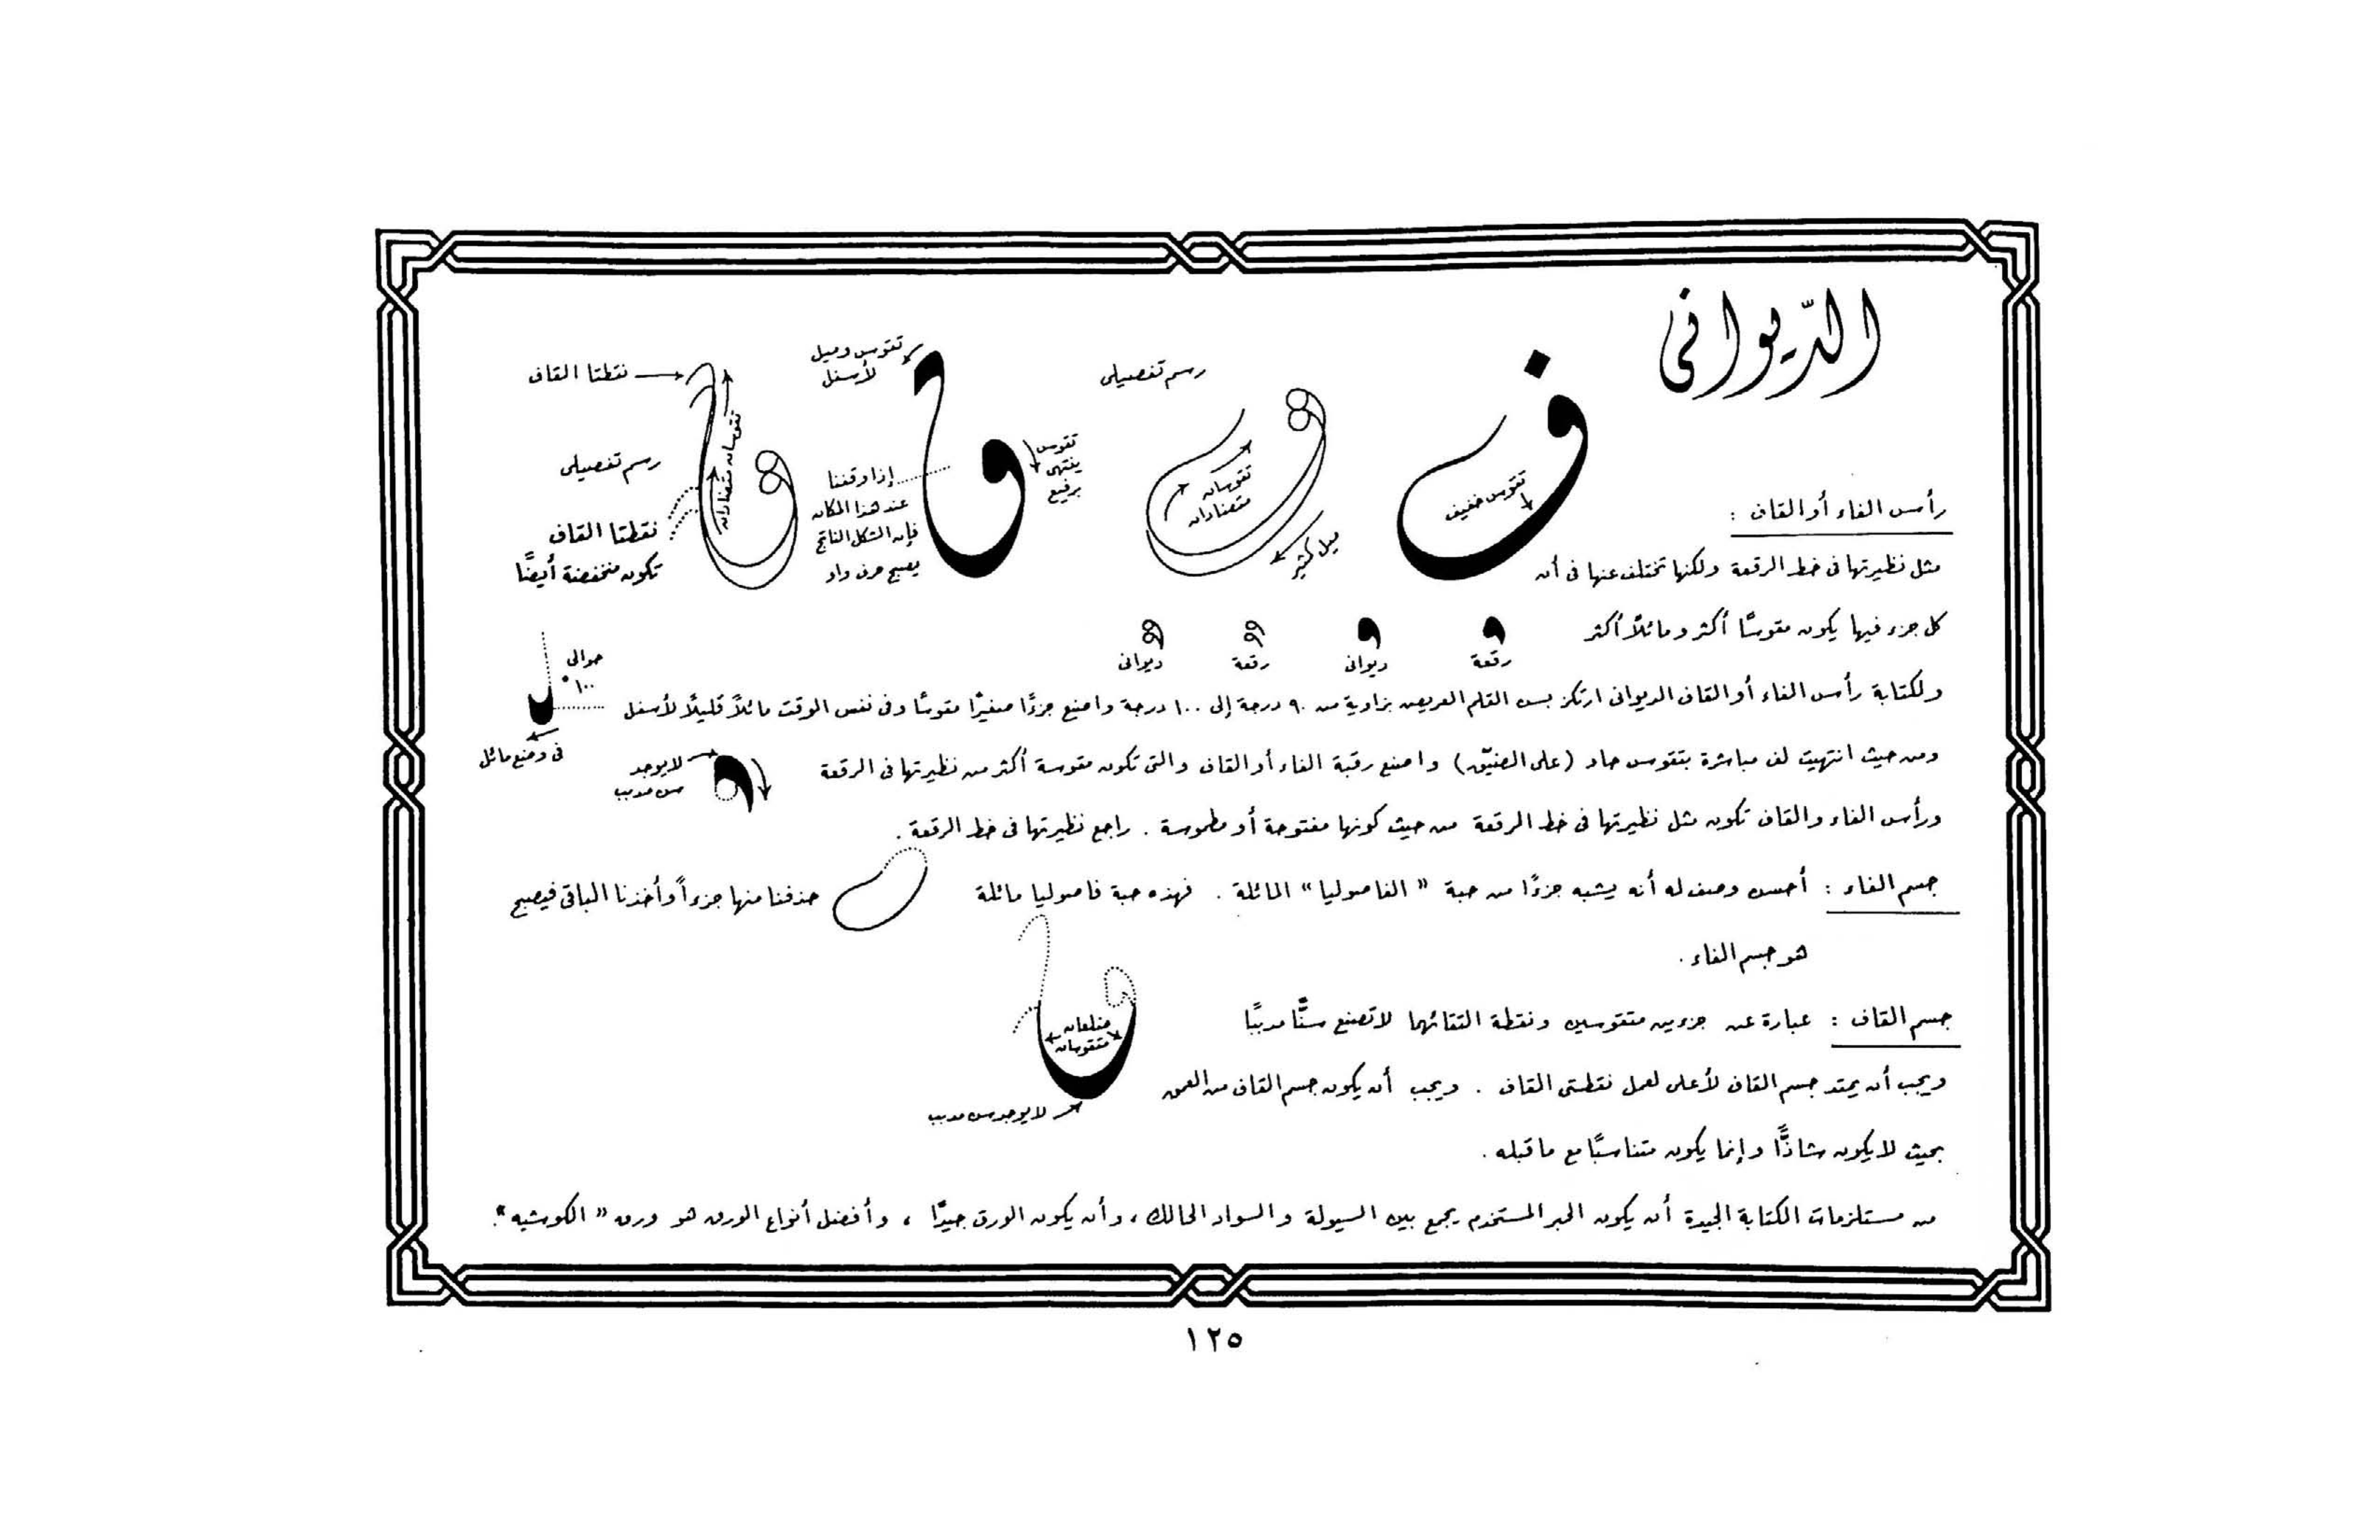 الدّيوانى
رسم تفصيلى
تقوس وميل
لأسفل
نقطتا القاف
تقوس
ينتهى
برفيع
رسم تفصيلى
تقوسان متضادان
إذا وقفنا
عند هذا المكان
فإن الشكل الناتج
يصبح حرف واو
تقوس خفيف
تقوسان
متضادان
ميل كثير
نقطتا القاف
تكون منخفضة أيضًا
رأس الفاء أو القاف :
مثل نظيرتها فى خط الرقعة ولكنها تختلف عنها فى أن
كل جزء فيها يكون مقوسًا أكثر ومائلًا أكثر
رقعة
ديوانى
رقعة
ديوانى
حوالى
١٠٠°
ولكتابة رأس الفاء أو القاف الديوانى ارتكز بسن القلم العريض بزاوية من ٩٠ درجة إلى ١٠٠ درجة واصنع جزءًا صغيرًا مقوسًا وفى نفس الوقت مائلًا قليلًا لأسفل
فى وضع مائل
ومن حيث انتهيت لف مباشرة بتقوس حاد (على الضيّق) واصنع رقبة الفاء أو القاف والتى تكون مقوسة أكثر من نظيرتها فى الرقعة
لا يوجد
سن مدبب
ورأس الفاء والقاف تكون مثل نظيرتها فى خط الرقعة من حيث كونها مفتوحة أو مطموسة . راجع نظيرتها فى خط الرقعة .
جسم الفاء : أحسن وصف له أنه يشبه جزءًا من حبة " الفاصوليا " المائلة . فهذه حبة فاصوليا مائلة حذفنا منها جزءاً وأخذنا الباقى فيصبح
هو جسم الفاء .
جسم القاف : عبارة عن جزءين متقوسين ونقطة التقائهما لا تصنع سنًّا مدببًا
ضلعان
متقوسان
ويجب أن يمتد جسم القاف لأعلى لعمل نقطتى القاف . ويجب أن يكون جسم القاف من العمق
لا يوجد سن مدبب
بحيث لا يكون شاذًّا وإنما يكون متناسبًا مع ما قبله .
من مستلزمات الكتابة الجيدة أن يكون الحبر المستخدم يجمع بين السيولة والسواد الحالك ، وأن يكون الورق جيدًا ، وأفضل أنواع الورق هو ورق " الكوشيه ".
١٢٥